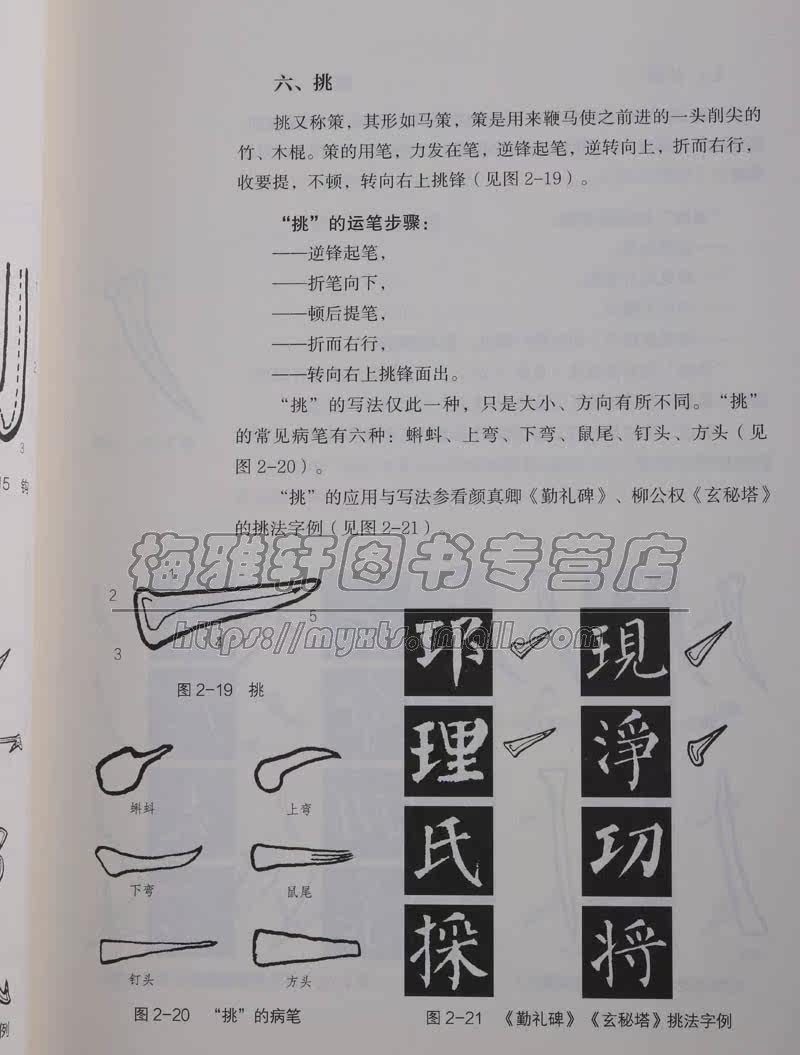 六、挑
挑又称策，其形如马策，策是用来鞭马使之前进的一头削尖的
竹、木棍。策的用笔，力发在笔，逆锋起笔，逆转向上，折而右行，
收要提，不顿，转向右上挑锋（见图2-19）。
“挑”的运笔步骤：
——逆锋起笔，
——折笔向下，
——顿后提笔，
——折而右行，
——转向右上挑锋面出。
“挑”的写法仅此一种，只是大小、方向有所不同。“挑”
的常见病笔有六种：蝌蚪、上弯、下弯、鼠尾、钉头、方头（见
图2-20）。
“挑”的应用与写法参看颜真卿《勤礼碑》、柳公权《玄秘塔》
的挑法字例（见图2-21）。
梅雅轩图书专营店
https://myxts.tmall.com
1
2
3
4
5
图2-19 挑
蝌蚪
上弯
下弯
鼠尾
钉头
方头
图2-20 “挑”的病笔
現
理 淨
氏 功
採 将
图2-21 《勤礼碑》《玄秘塔》挑法字例
3
15 钩
例